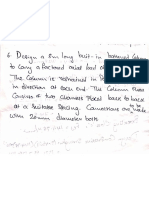 6. Design a 8m long built-in battened Col
to carry a factored axial load of
The Column is restrained in Po
in direction at both end. The Column
Consis of two channels placed back to back
at a Suitable Spacing. Connections are to be made
with 20mm diameter bolts